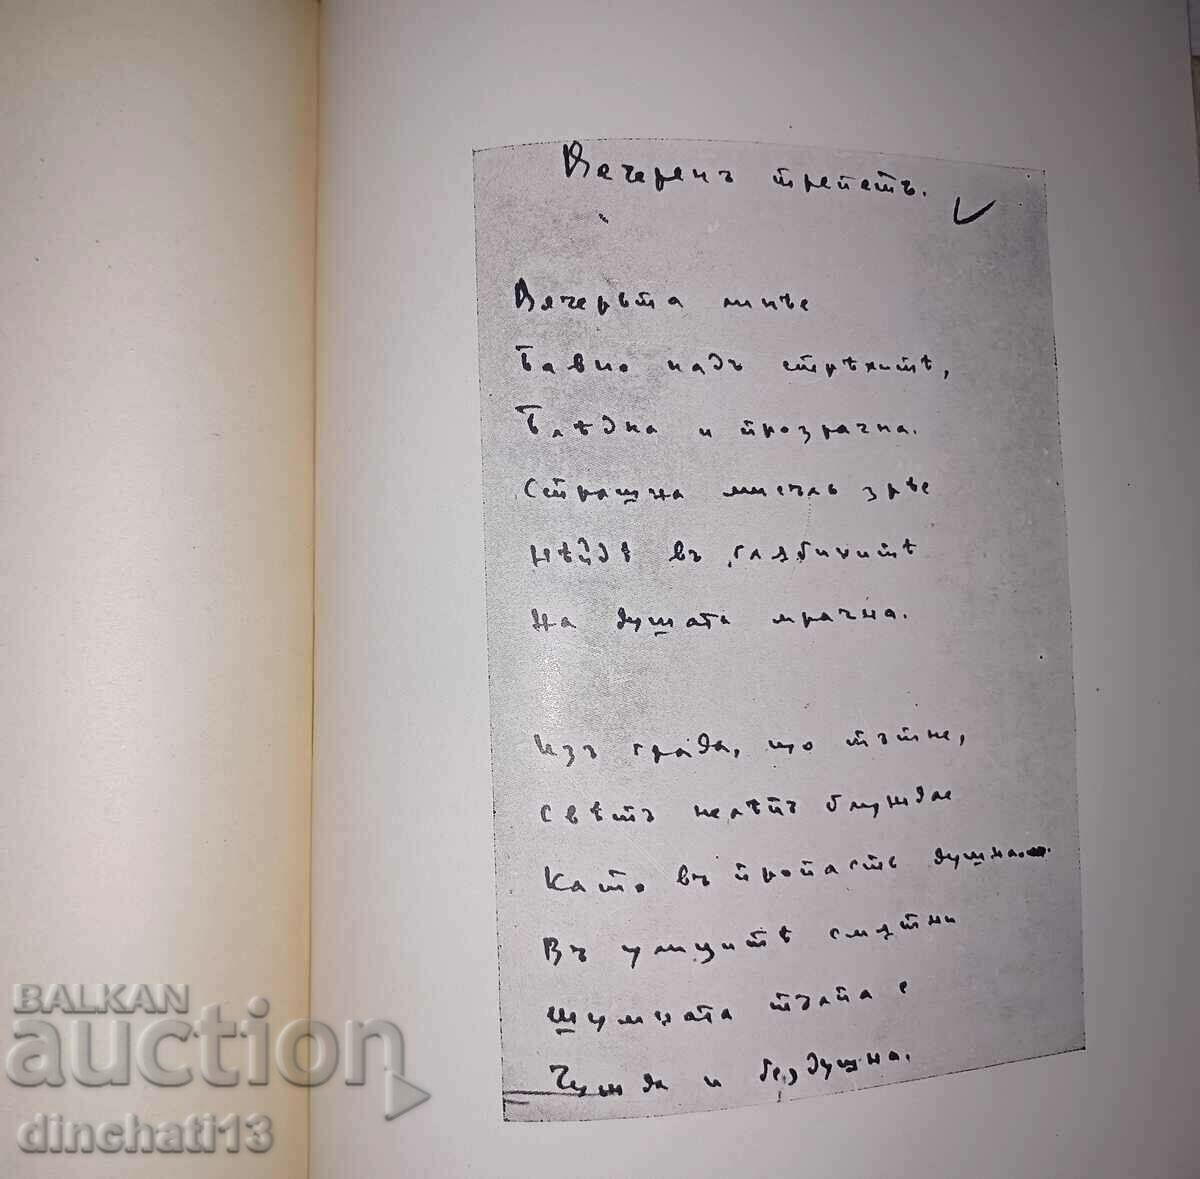 Вечеренъ трепетъ.
Вечерьта мине
Бавно надъ стрѣхитѣ,
Блѣдна и прозрачна.
Страшна мисъль зрѣе
Нѣйдѣ въ глѫбинитѣ
На душата мрачна.
Изъ града, що тътне,
Свѣтъ нелѣпъ блуждае
Като въ пропасть душна.
Въ улицитѣ смѫтни
Шумната тълпа е
Чужда и бездушна.
BALKAN
auction
dinchati13